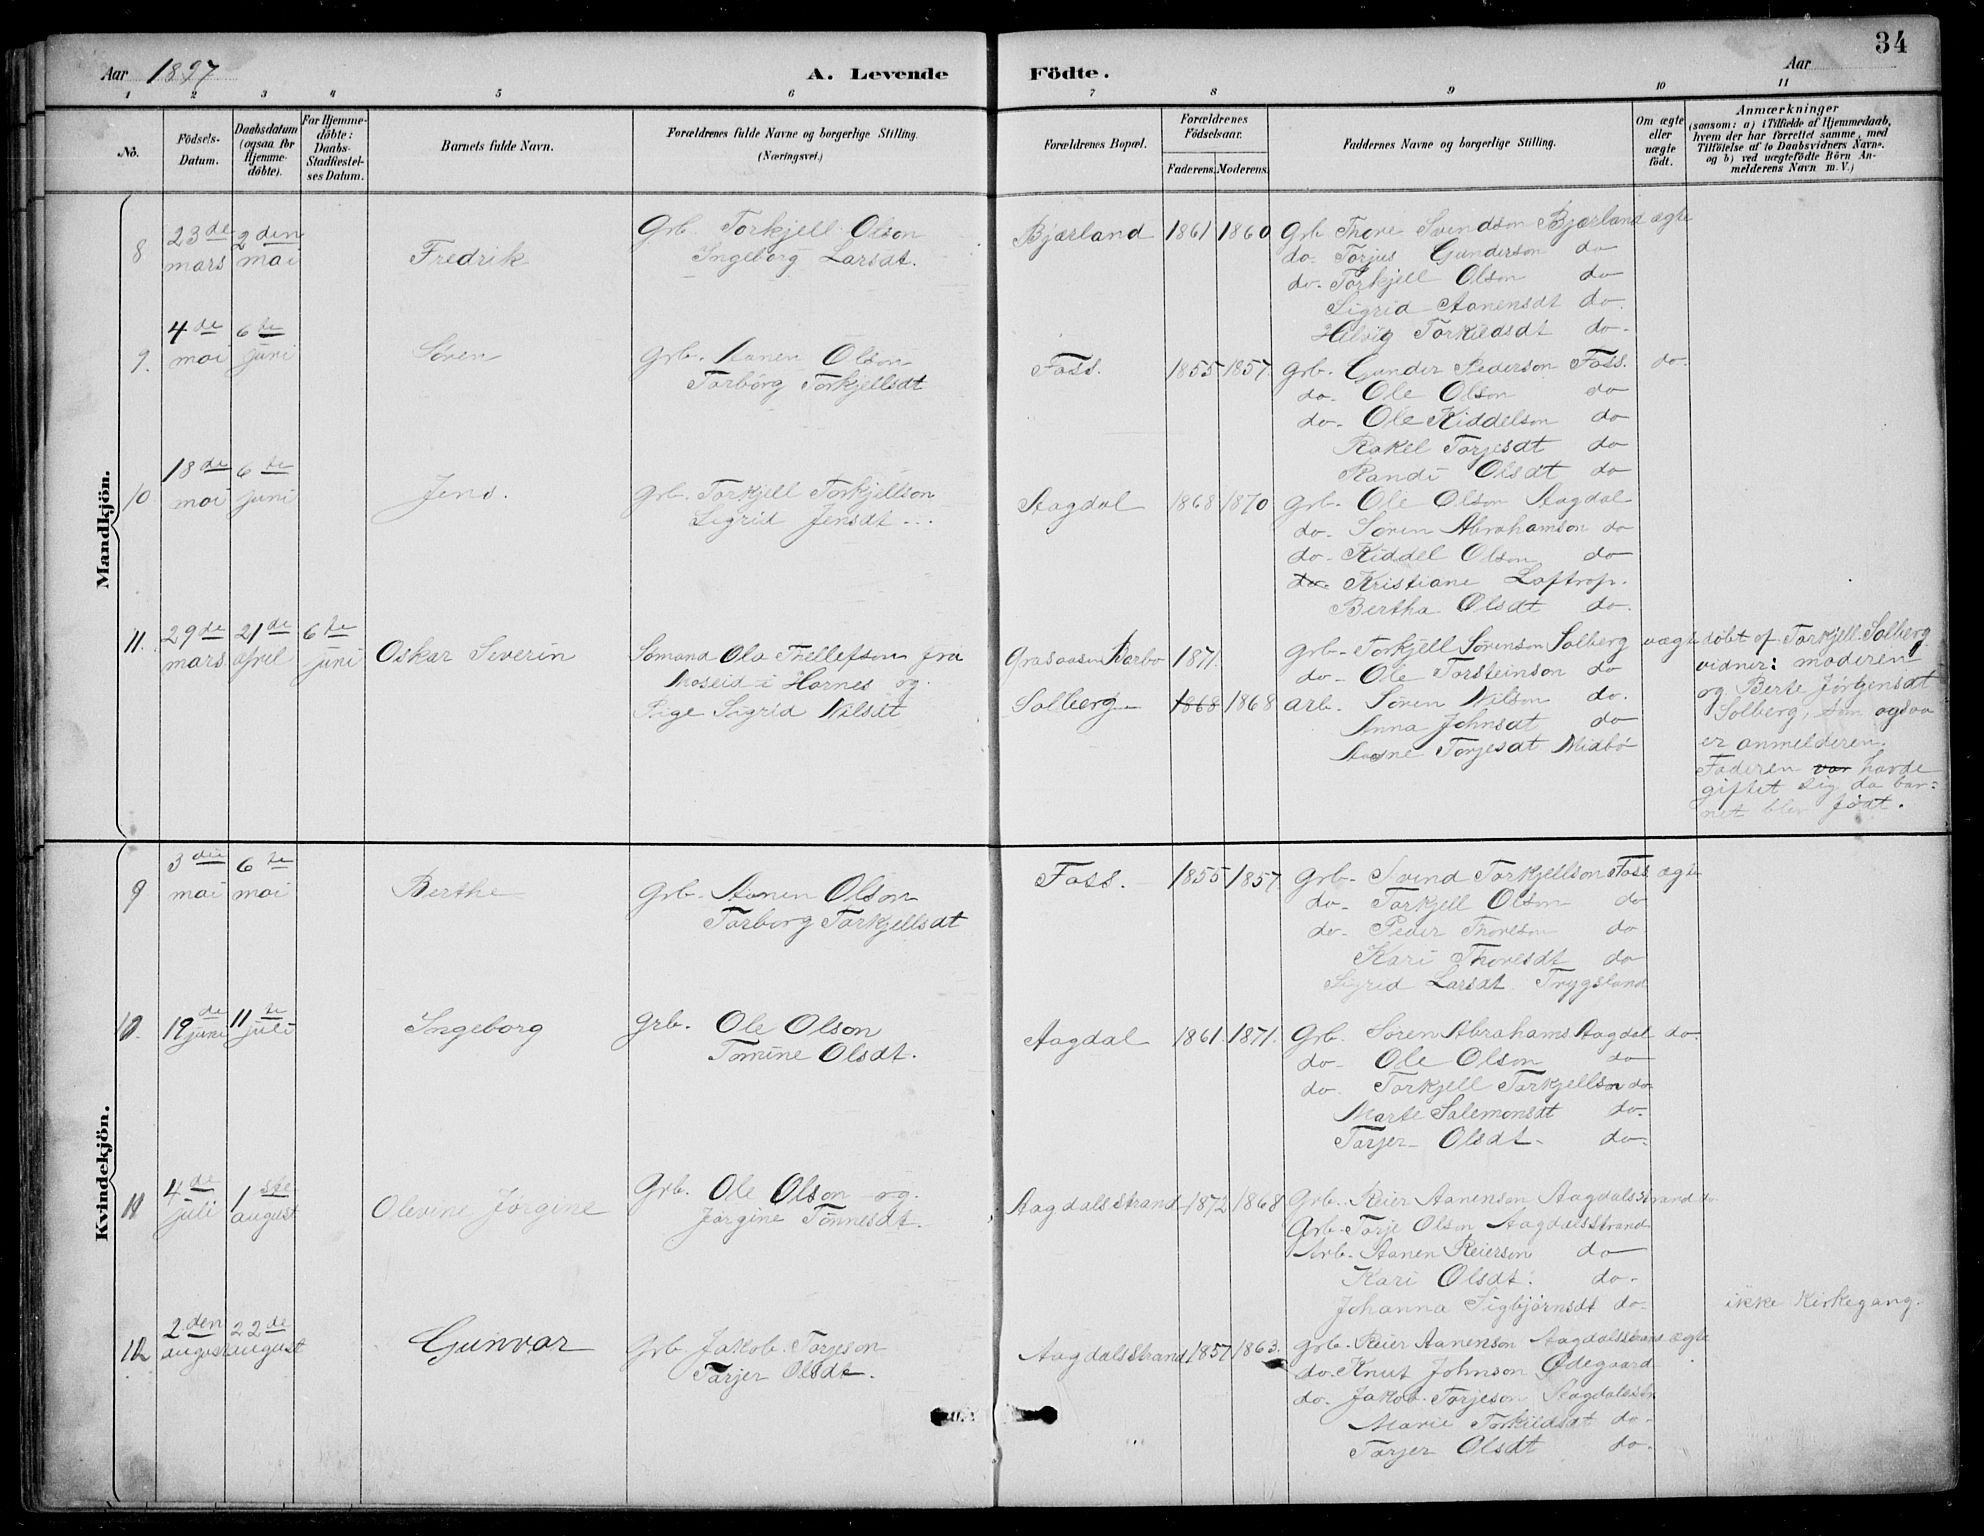 34
Aar 1897
A. Levende Födte.
Aar
1 2 3 4 5 6 7 8 9 10 11
No.
Födsels-Datum.
Daabsdatum (ogsaa for Hjemme-döbte).
For Hjemme-döbte: Daabs-Stadfæstel-ses Datum.
Barnets fulde Navn.
Forældrenes fulde Navne og borgerlige Stilling.
(Næringsvei.)
Forældrenes Bopæl.
Forældrenes Födselsaar.
Faderens. Moderens.
Faddernes Navne og borgerlige Stilling.
Om ægte eller uægte födt.
Anmærkninger
(saasom: a) i Tilfælde af Hjemmedaab, hvem der har forrettet samme, med Tilföielse af to Daabsvidners Navne. og b) ved uægtefödte Börn An-melderens Navn m. V.)
Mandkjön.
8 23de mars 2den mai Fredrik
Grb. Torkjell Olson
Ingeborg Larsdt.
Bjærland 1861 1860
Grb. Thore Svendson Bjærland ægte
do. Torjus Gunderson do
do. Torkjell Olson do
Sigrid Aanensdt do.
Hilvig Torkildsdt do.
9. 4de mai 6te juni Søren
Grb. Aanen Olson
Torborg Torkjellsdt
Foss. 1855 1857
Grb. Gunder Pederson Foss. do.
do. Ole Olson do
do. Ole Kiddelson do
Rakel Torjesdt do
Randi Olsdt do
10 18de mai 6te juni Jens.
Grb. Torkjell Torkjellson
Sigrid Jensdt
Aagdal 1868 1870
Grb. Ole Olson Aagdal
do. Søren Abrahamson do
do. Kiddel Olson do
do. Kristiane Loftrop.
Bertha Olsdt do.
11. 29de mars 21de april 6te juni Oskar Severin
Sømand Ola Thellefson fra
Moseid i Hornes og
Pige Sigrid Nilsdt
Barbo 1871.
Solberg 1868 1868
Grb. Torkjell Sørenson Solberg uægte
do. Ole Torsteinson do
arb. Søren Nilson do.
Anna Johnsdt do
Torjesdt Midbø
døbt af Torkjell Solberg
vidner: moderen
og Berte Jørgensdt
Solberg, som ogsaa
er anmelderen.
Faderen var havde
giftet sig da bar-
net blev født.
Kvindekjön.
9 3die mai 6te mai Berthe
Grb. Aanen Olson
Torborg Torkjellsdt
Foss. 1855 1857
Grb. Svend Torkjellson Foss ægte
do. Torkjell Olson do
do. Peder Thoreson do
Kari Thoresdt do
Sigrid Larsdt Trygsland
10. 19de juni 11te juli Ingeborg
Grb. Ole Olson
Tomine Olsdt.
Aagdal 1861. 1871.
Grb. Søren Abrahams Aagdal do.
do. Ole Olson do
do. Torkjell Torkjellson do
Marte Salemonsdt do.
Torjer Olsdt do.
11 4de juli 1ste august Olevine Jørgine
Grb. Ole Olson og.
Jørgine Tønnesdt.
Aagdalsstrand 1872 1868
Grb. Reier Aanenson Aagdalsstrand do
Grb. Torje Olson Aagdalsstrand
Arb. Aanen Reierson do
Kari Olsdt. do.
Johanna Sigbjørnsdt do.
12 2den august 22de august Gunvor
Grb. Jakob Torjeson
Torjer Olsdt.
Aagdalsstrand 1857 1863.
Grb. Reier Aanenson Aagdalsstrand ægte
do. Knut Johnson Ødegaard
do. Jakob Torjeson Aagdalsstr
Marie Torkildsdt do.
Torjer Olsdt do.
ikke kirkegang.